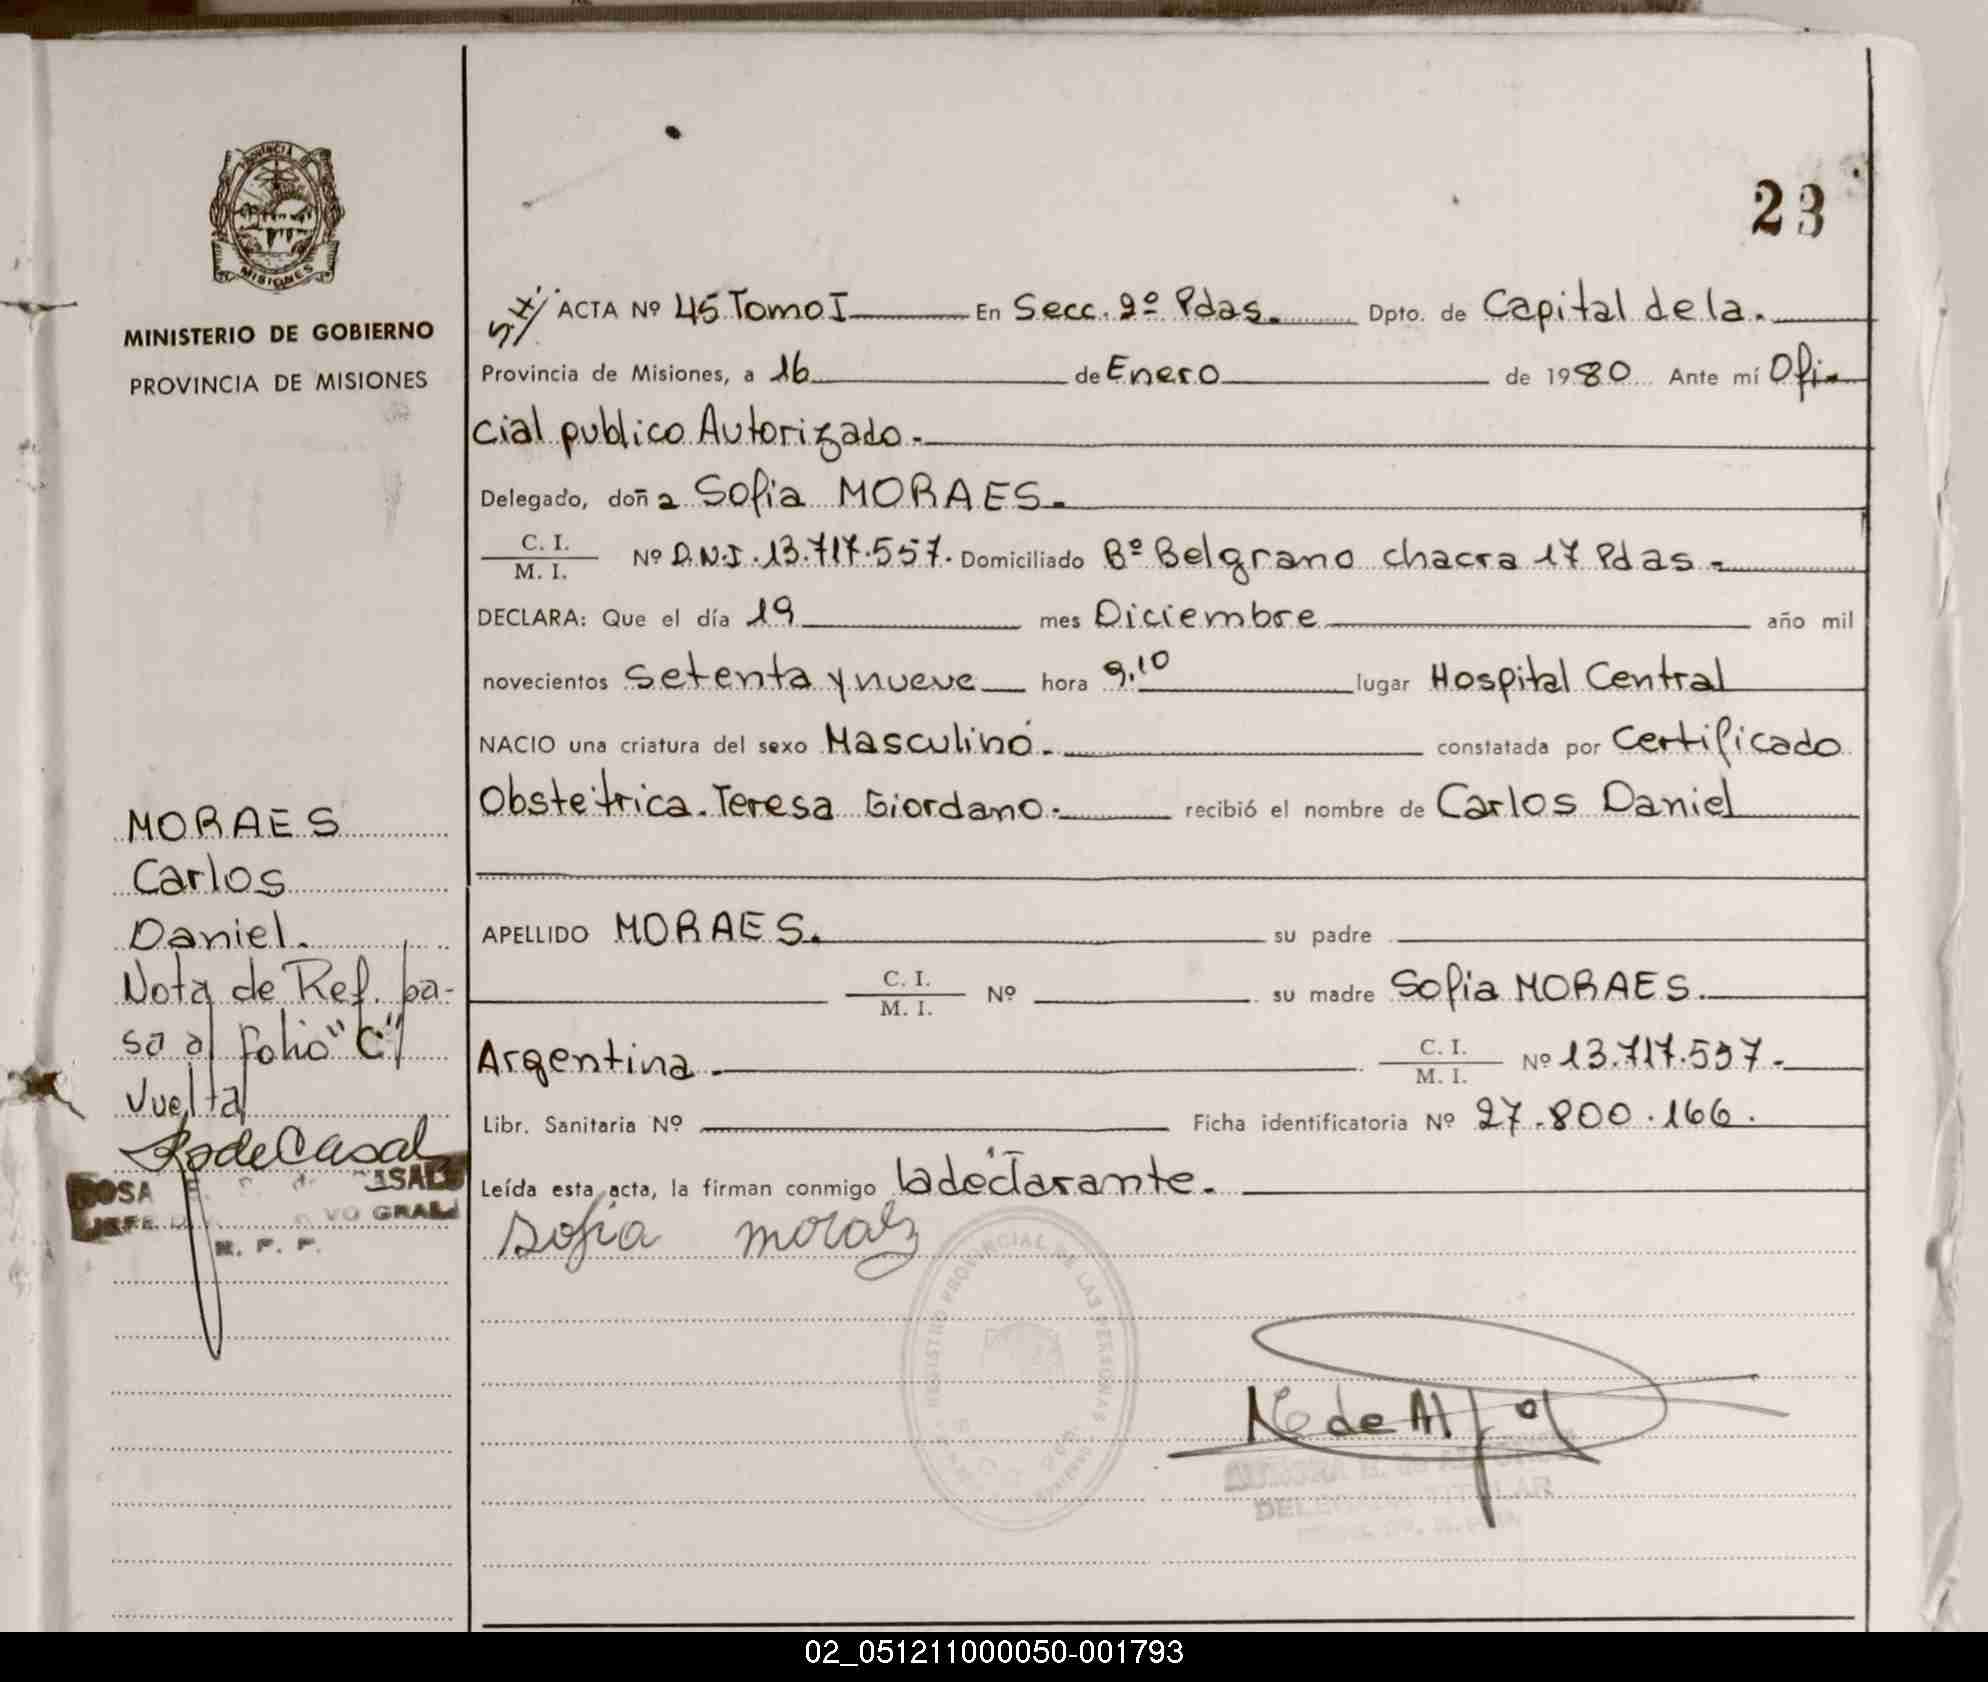 PROVINCIA DE
MISIONES
MINISTERIO DE GOBIERNO
PROVINCIA DE MISIONES
23
ACTA Nº 45 Tomo I En Secc. 2º Pdas. Dpto. de Capital de la.
Provincia de Misiones, a 16 de Enero de 1980 Ante mí Ofi-
cial publico Autorizado.
Delegado, doña Sofia MORAES.
C. I.
M. I. Nº D.N.I. 13.717.557. Domiciliado Bº Belgrano chacra 17 Pdas.
DECLARA: Que el día 19 mes Diciembre año mil
novecientos setenta y nueve hora 9,10 lugar Hospital Central
NACIO una criatura del sexo Masculino. constatada por Certificado
Obstetrica. Teresa Giordano. recibió el nombre de Carlos Daniel
APELLIDO MORAES. su padre
C. I.
M. I. Nº su madre Sofia MORAES.
Argentina. C. I.
M. I. Nº 13.717.557.
Libr. Sanitaria Nº Ficha identificatoria Nº 27.800.166.
Leída esta acta, la firman conmigo la declarante.
Sofia Moraes
REGISTRO PROVINCIAL DE LAS PERSONAS
DELEGADA TITULAR
MORAES
Carlos
Daniel.
Nota de Ref. pa-
sa al folio "C"
vuelta
R de Casal
ROSA CASAL
JEFE VO GRAL
R. P. P.
02_051211000050-001793